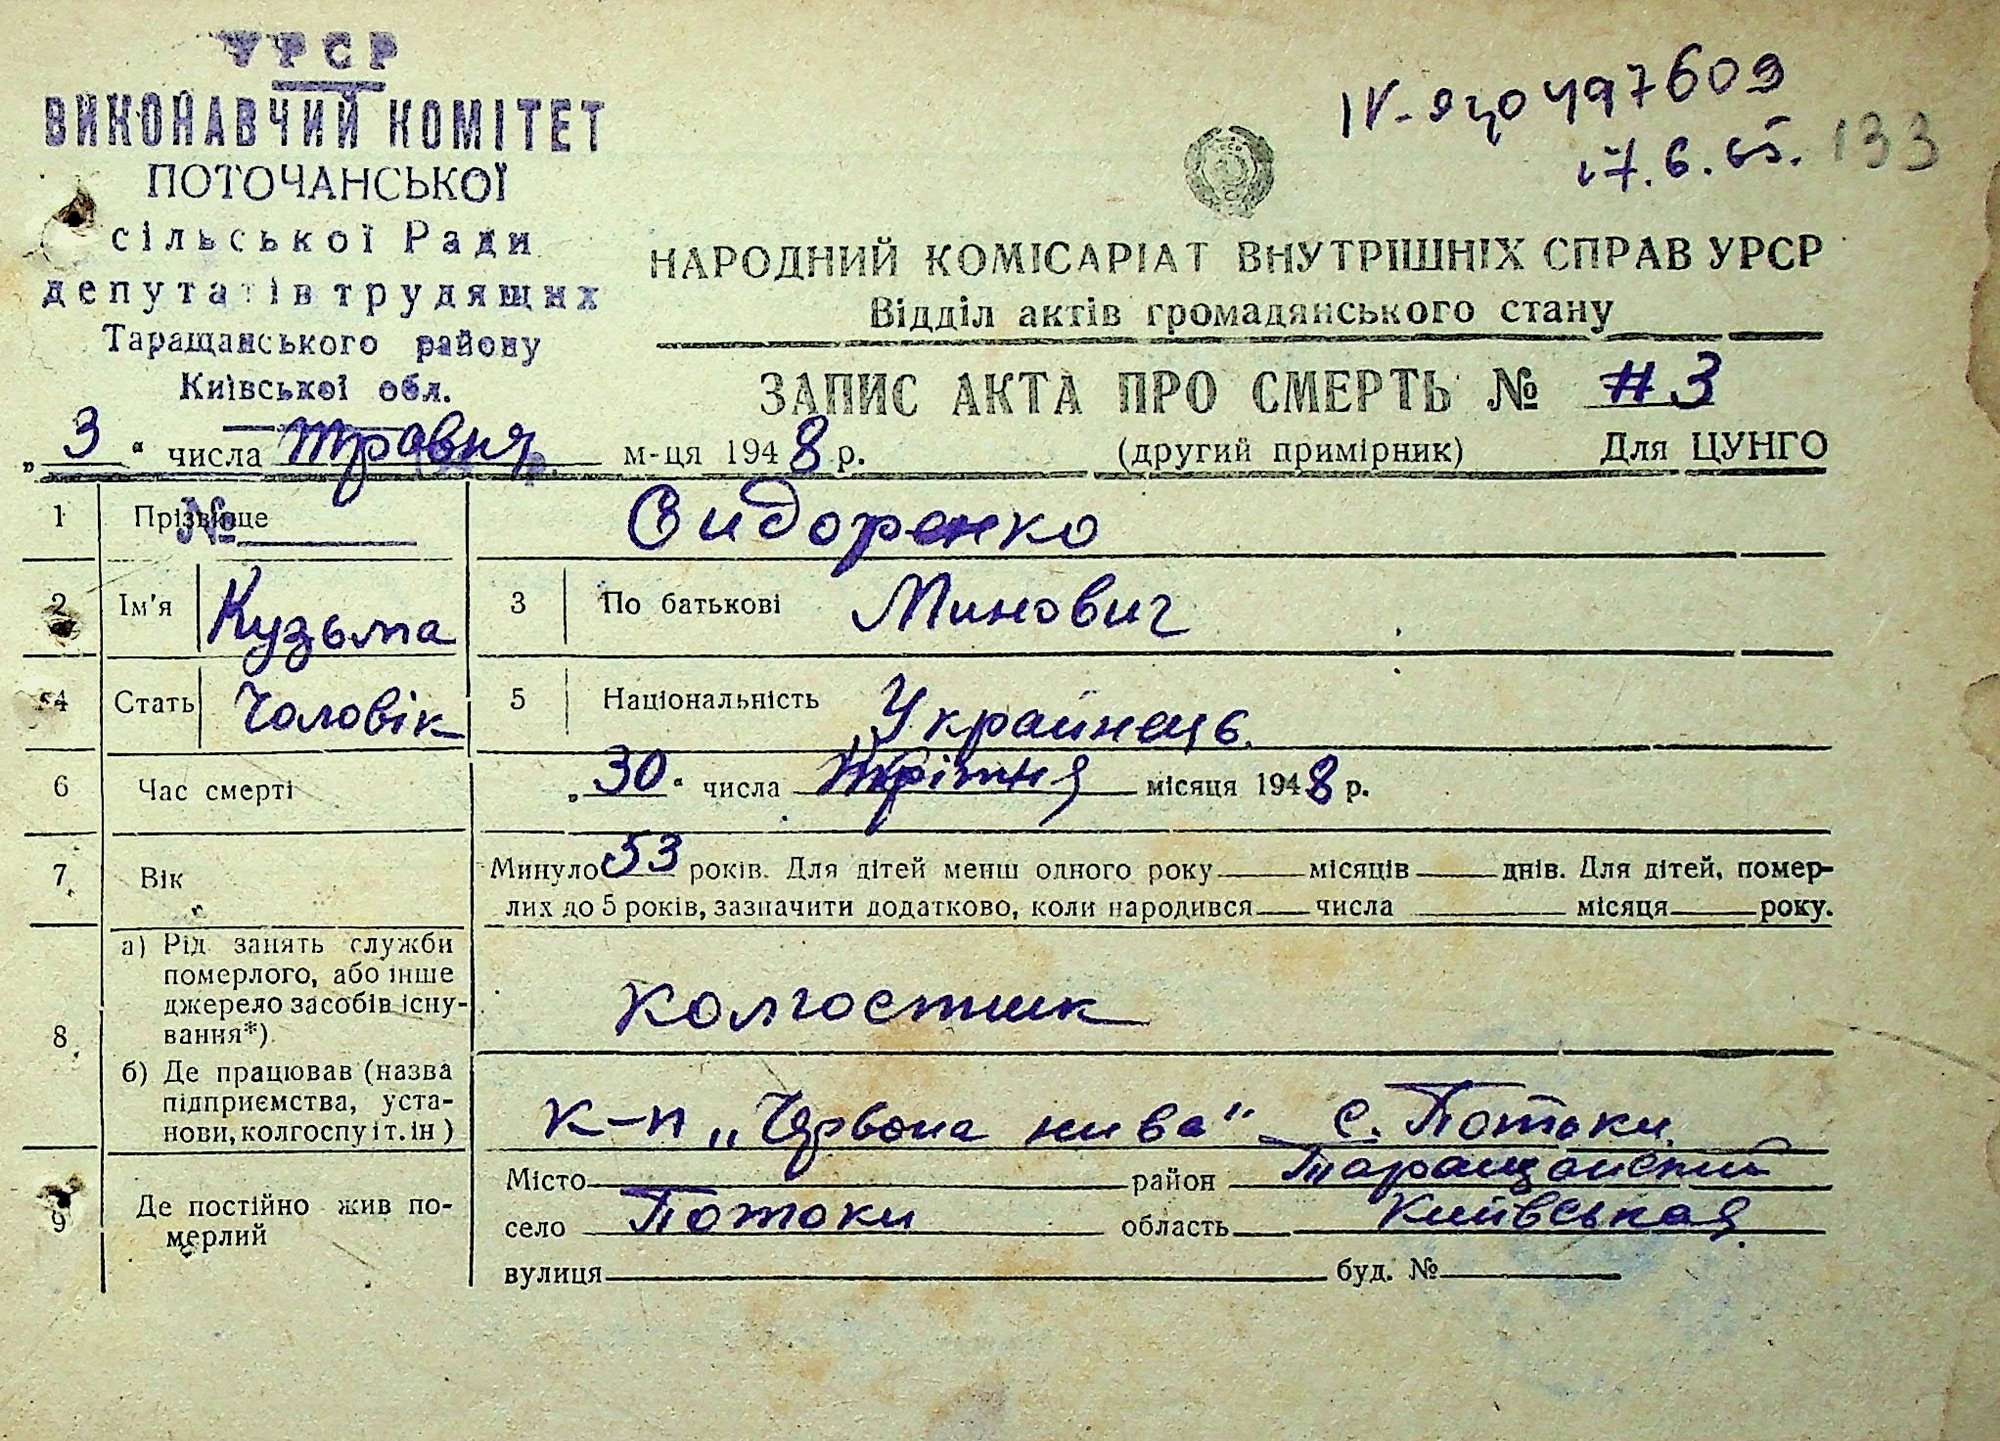 УРСР
ВИКОНАВЧИЙ КОМІТЕТ
ПОТОЧАНСЬКОЇ
сільської Ради
депутатів трудящих
Таращанського району
Київської обл.
№
IV-ЯЦО 497609
17.6.65. 133
НАРОДНИЙ КОМІСАРІАТ ВНУТРІШНІХ СПРАВ УРСР
Відділ актів громадянського стану
ЗАПИС АКТА ПРО СМЕРТЬ № #3
„3“ числа травня м-ця 1948 р. (другий примірник) Для ЦУНГО
1 Прізвище Сидоренко
2 Ім'я Кузьма 3 По батькові Минович
4 Стать Чоловік 5 Національність Українець.
6 Час смерті „30“ числа Квітня місяця 1948 р.
7 Вік Минуло 53 років. Для дітей менш одного року місяців днів. Для дітей, помер-
лих до 5 років, зазначити додатково, коли народився числа місяця року.
8 а) Рід занять служби
померлого, або інше
джерело засобів існу-
вання*)
Колгостник
б) Де працював (назва
підприємства, уста-
нови, колгоспу і т. ін)
к-п „Червона нива“ с. Потоки.
9 Де постійно жив по-
мерлий
Місто район Таращанский
село Потоки область Київськая
вулиця буд. №